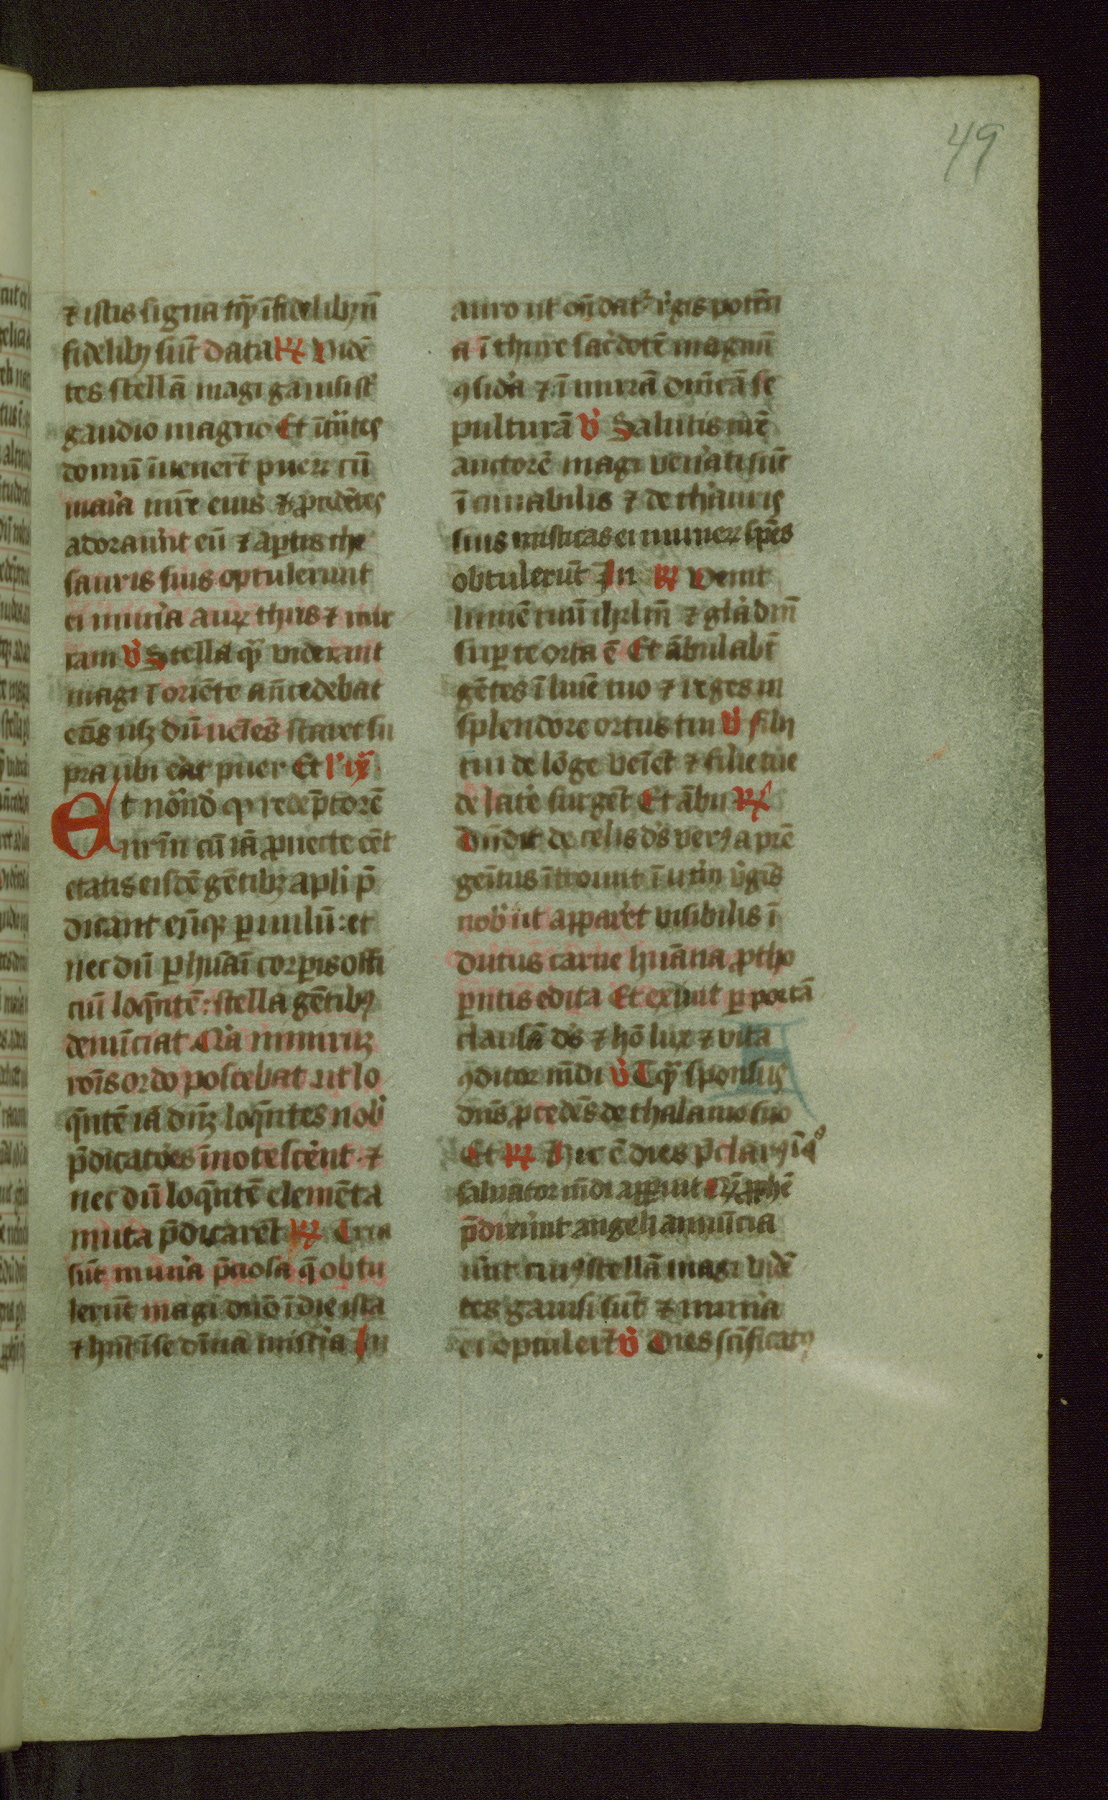 49
⁊ istis signa tāq̄ īfidelibꝫ nō
fidelibꝫ sūt data ℟ Vidē
tes stellā magi gauisi st̄
gaudio magno Et ītrātes
domū īuenert̄ puerꝫ cū
maria mr̄e eius ⁊ ꝓcidētes
adorauer̄t eū ⁊ aꝑtis the
sauris suis optulerunt
ei mun̄a aurꝫ thus ⁊ mir
ram V̄ Stella quā viderant
magi ī oriēte an̄tedebat
eos usqꝫ dū ueiēs staret su
pra ubi erat puer Et l' ix
Et nōnd' qꝫ redēptorē
nr̄m cū iā ꝓuecte eēt
etatis eisdē gētibꝫ apl'i p̄
dicant eūqꝫ ꝑuulū: et
nec dū ꝑ huāi corꝑis offi
ciū loq̄ntē: stella gētibꝫ
denūciat Quia nimirꝫ
rōis ordo poscebat ut lo
q̄ntē iā dn̄ꝫ loq̄ntes nob'
p̄dicatores īnotescer̄t ⁊
nec dū loq̄ntē elemēta
muta p̄dicarēt ℟ Tria
sūt mun̄a p̄ciosa q̄ obtu
lerūt magi dn̄o ī die ista
⁊ hn̄t ī se diuīa mist'ia In
auro ut on̄dat' regis potēti
a ī thure sac'dotē magnū
ꝯsid'a ⁊ ī mirrā dn̄icā se
pulturā V̄ Salutis nr̄e
auctorē magi ven'ati sūt
ī cunabulis ⁊ de th'auris
suis misticas ei munerꝫ sp̄es
obtulerūt In ℟ Venit
lumē tuū ihrl'm ⁊ gl'a dn̄i
suꝑ te orta ē Et ābulabt̄
gētes ī lumē tuo ⁊ reges in
splendore ortus tui V̄ filij
tui de lōge veiēt ⁊ filie tue
de lat'e surgēt Et ābu ℟
Illudit de celis d's verꝰ a pr̄e
genitus ītroiuit ī ut'm v'gīs
nob' ut apparet visibilis ī
dutus carne huāna ꝓtho
ꝑentis edita Et exiuit ꝑ portā
clausā d's ⁊ hō lux ⁊ vita
ꝯditor mūdi V̄ Tāq̄ sponsus
dn̄s ꝓcedēs de thalamo suo
Et ℟ Hic ē dies p̄clarꝰ ī q°
saluator mūdi apparuit quē ꝓphē
p̄dixer̄t angeli annūcia
uer̄t cuiꝰ stellā magi vidē
tes gauisi sūt ⁊ mun̄a
ei optulert̄ V̄ Dies sc̄ificatꝰ